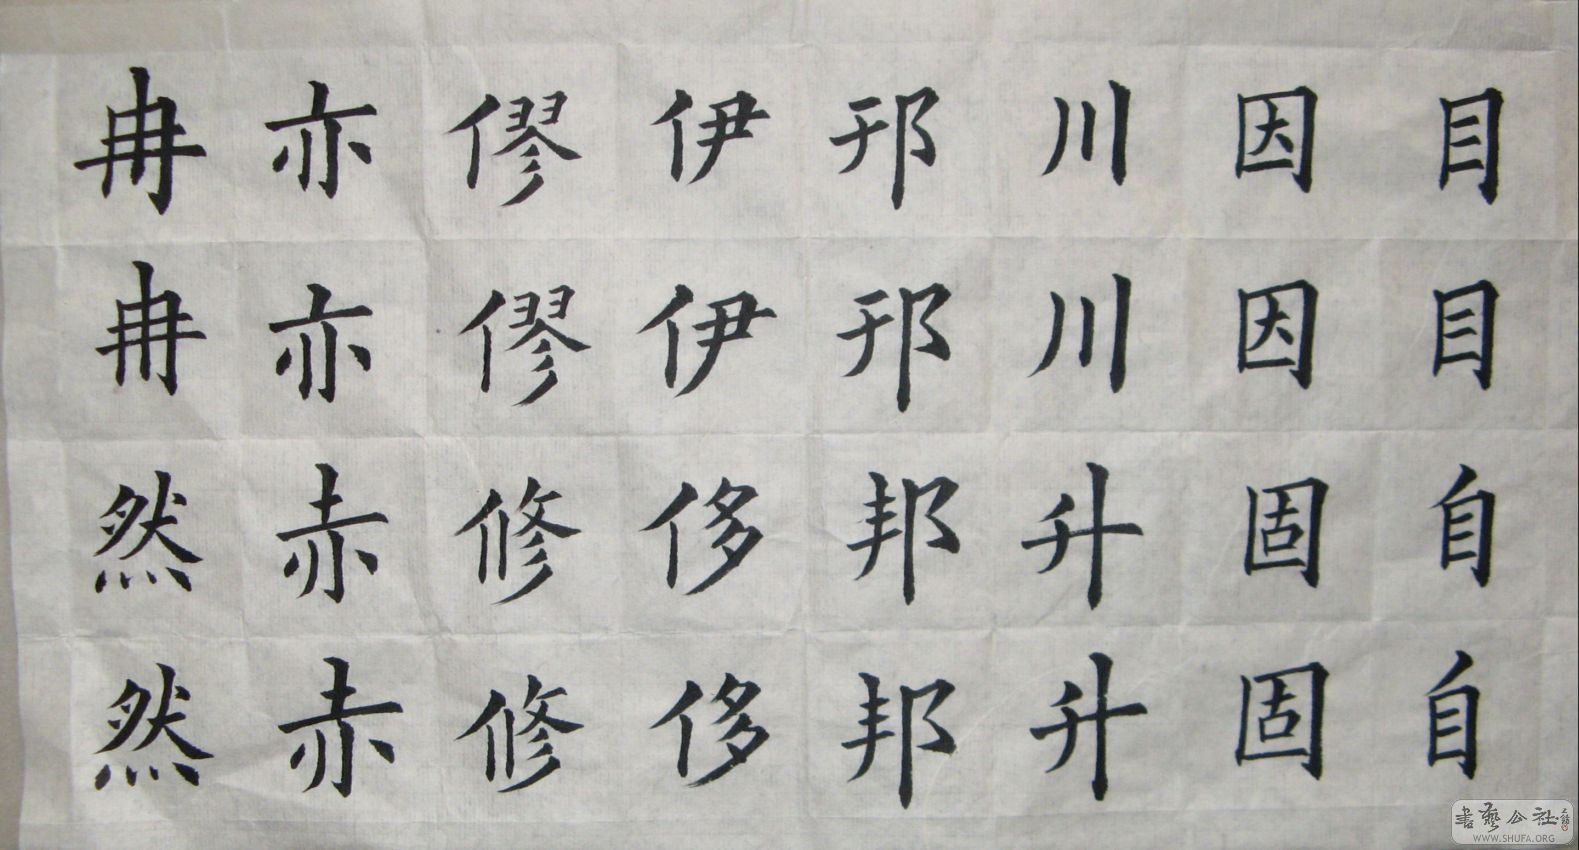 目目自自
因因固固
川川升升
邢邢邦邦
伊伊侈侈
僇僇修修
亦亦赤赤
冉冉然然
書藝公社
WWW.SHUFA.ORG